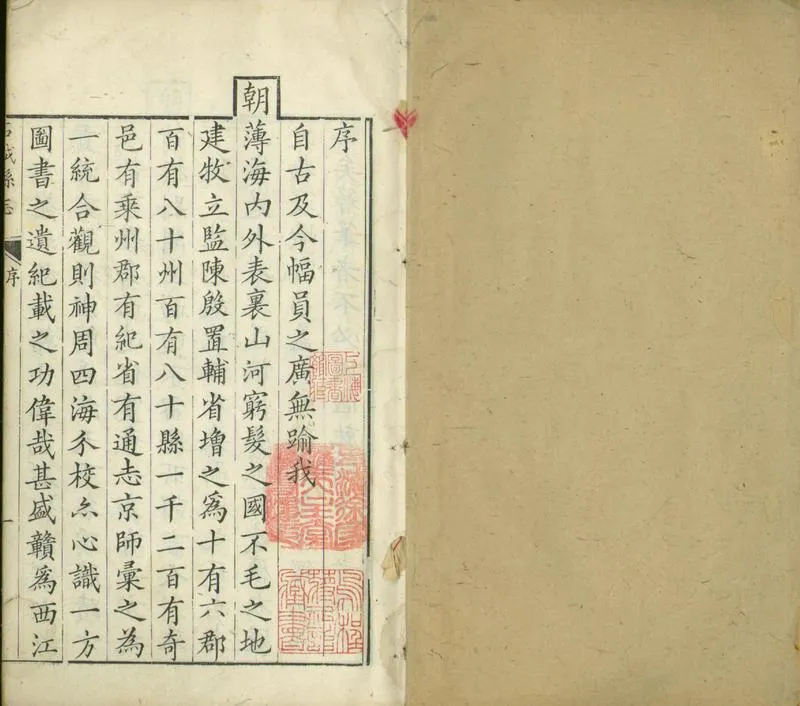 序
自古及今幅員之廣無踰我
朝薄海內外表裏山河窮髮之國不毛之地
建牧立監陳殷置輔省增之爲十有六郡
百有八十州百有八十縣一千二百有奇
邑有乘州郡有紀省有通志京師彙之為
一統合觀則神周四海糸校亦心識一方
圖書之遺紀載之功偉哉甚盛贛爲西江
石城縣志
序
一